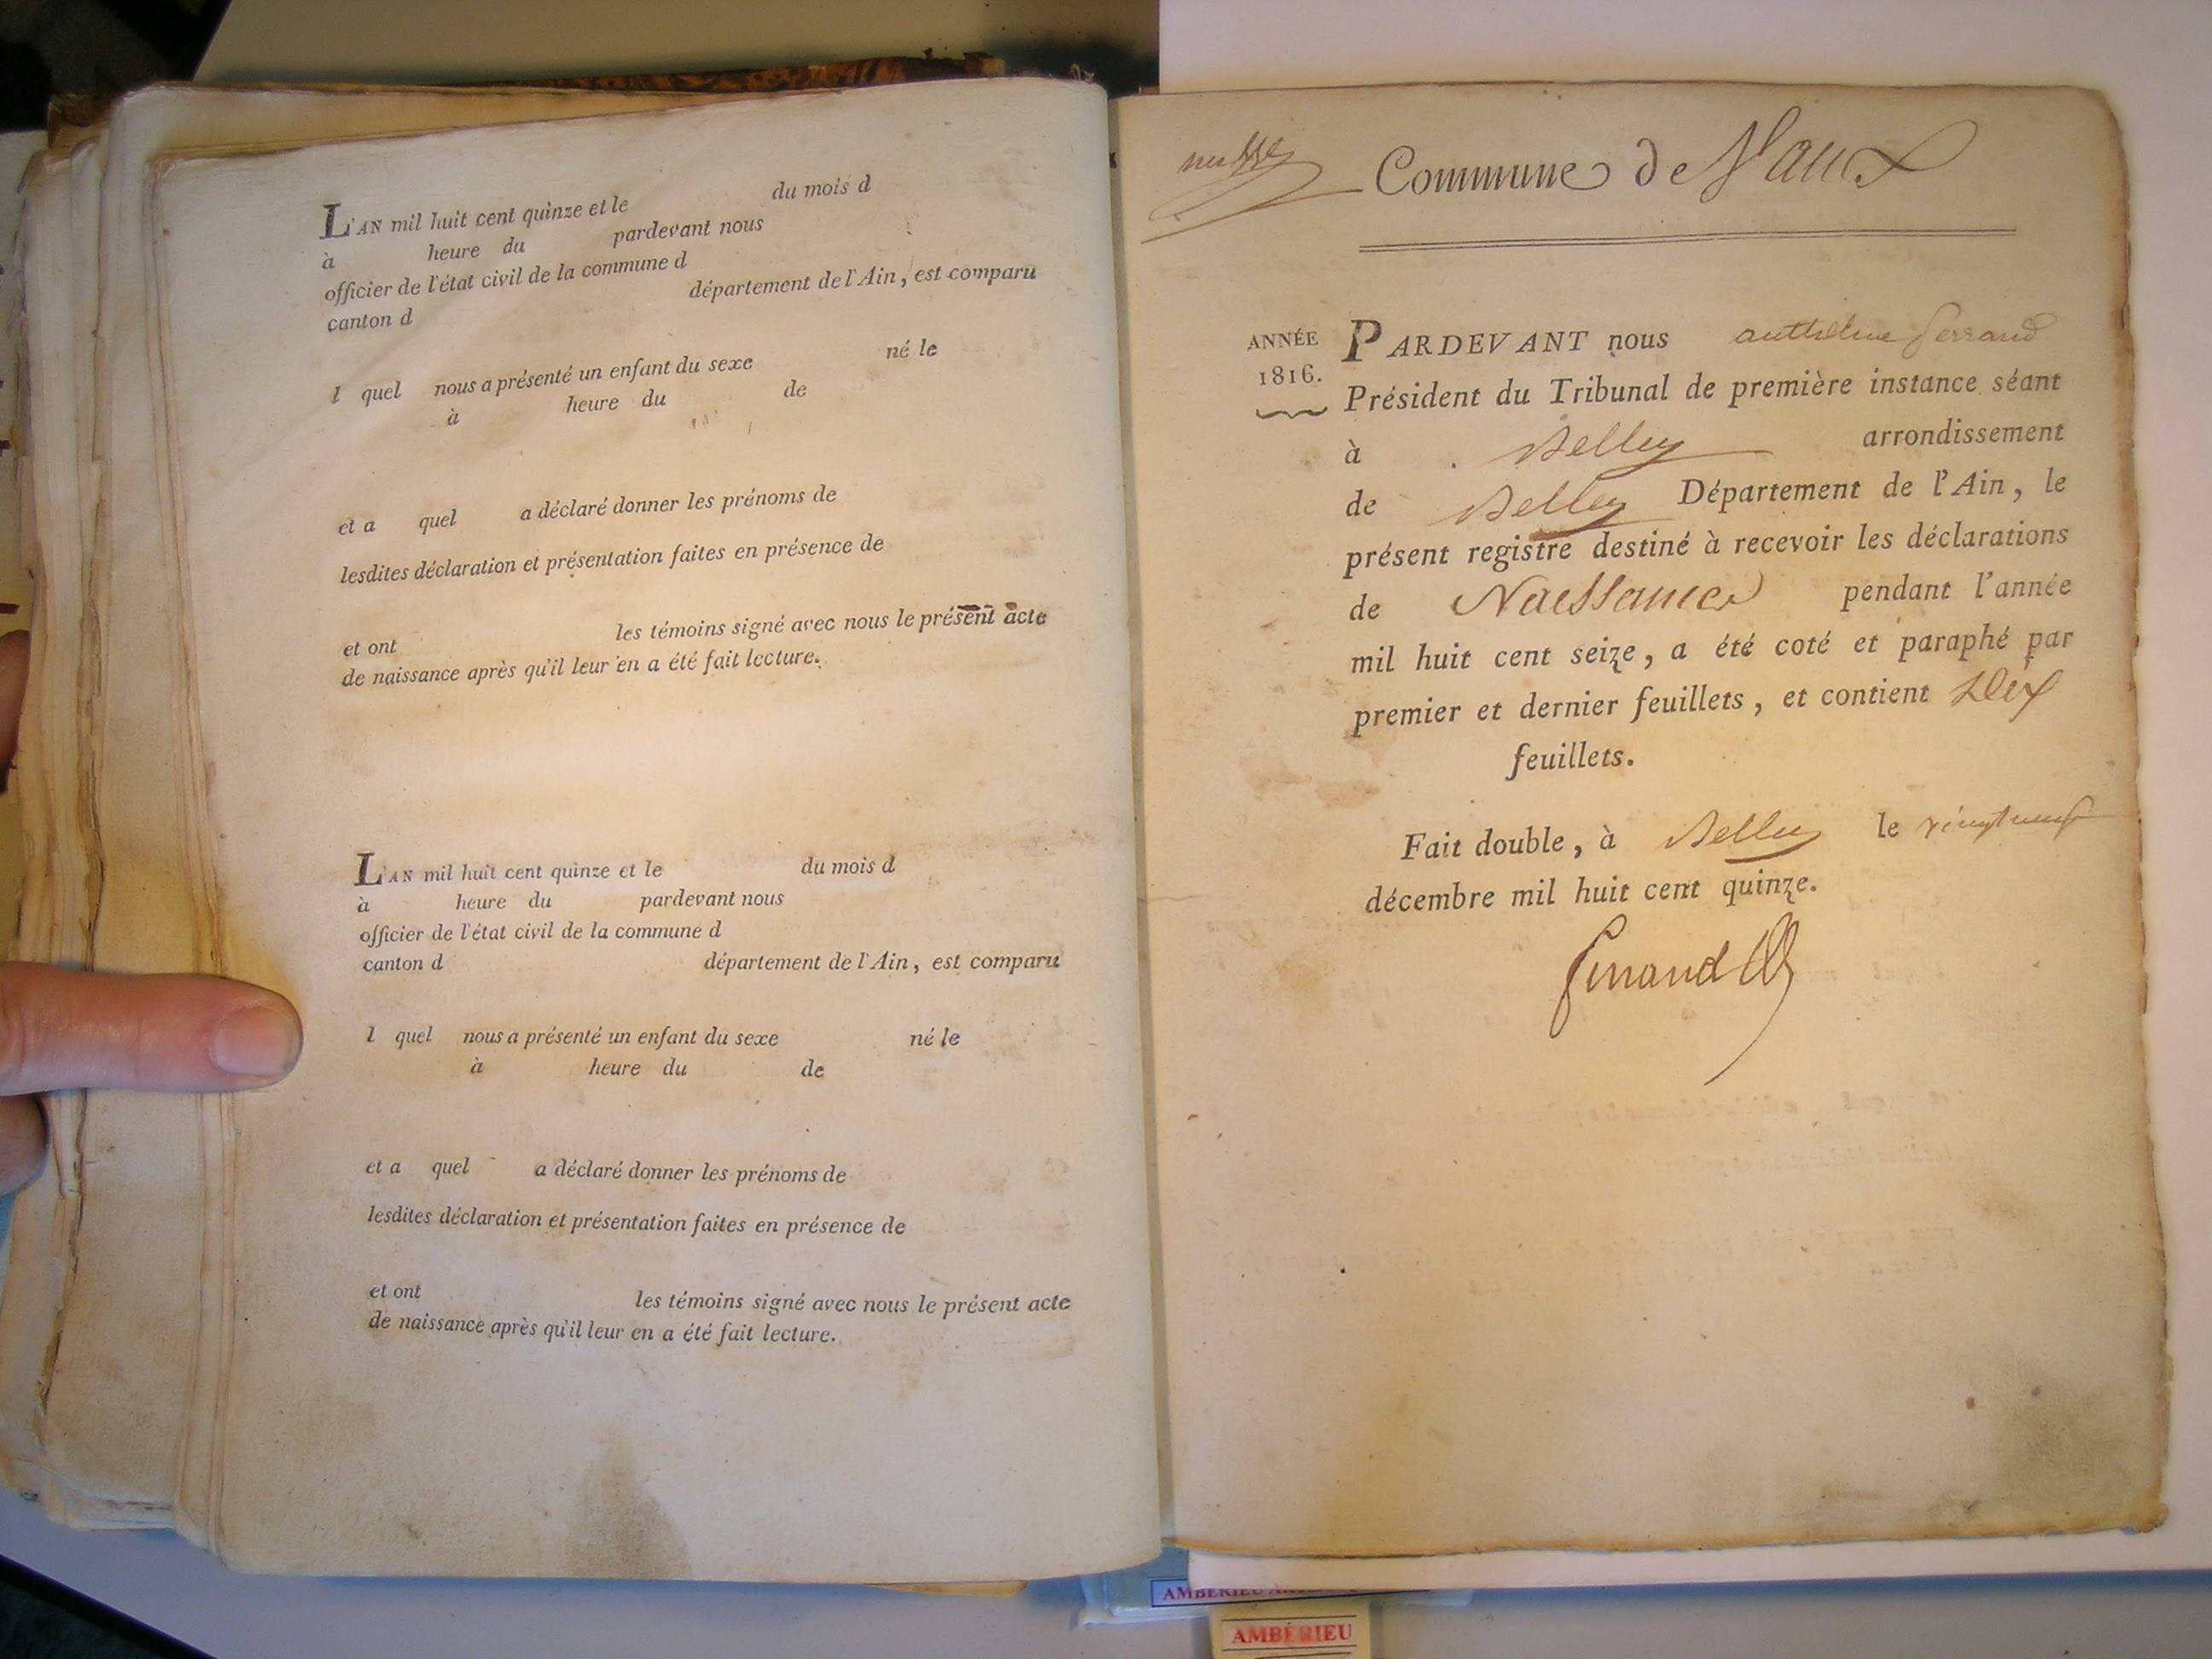 L'AN mil huit cent quinze et le du mois d
à heure du pardevant nous
officier de l'état civil de la commune d
canton d département de l'Ain, est comparu
l quel nous a présenté un enfant du sexe né le
à heure du de
et a quel a déclaré donner les prénoms de
lesdites déclaration et présentation faites en présence de
et ont les témoins signé avec nous le présent acte
de naissance après qu'il leur en a été fait lecture.
L'AN mil huit cent quinze et le du mois d
à heure du pardevant nous
officier de l'état civil de la commune d
canton d département de l'Ain, est comparu
l quel nous a présenté un enfant du sexe né le
à heure du de
et a quel a déclaré donner les prénoms de
lesdites déclaration et présentation faites en présence de
et ont les témoins signé avec nous le présent acte
de naissance après qu'il leur en a été fait lecture.
Commune de Vaux
ANNÉE
1816.
PARDEVANT nous anthelme ferrand
Président du Tribunal de première instance séant
à Belley arrondissement
de Belley Département de l'Ain, le
présent registre destiné à recevoir les déclarations
de Naissance pendant l'année
mil huit cent seize, a été coté et paraphé par
premier et dernier feuillets, et contient Dix
feuillets.
Fait double, à Belley le vingt neuf
décembre mil huit cent quinze.
ferrand
AMBÉRIEU
AMBÉRIEU